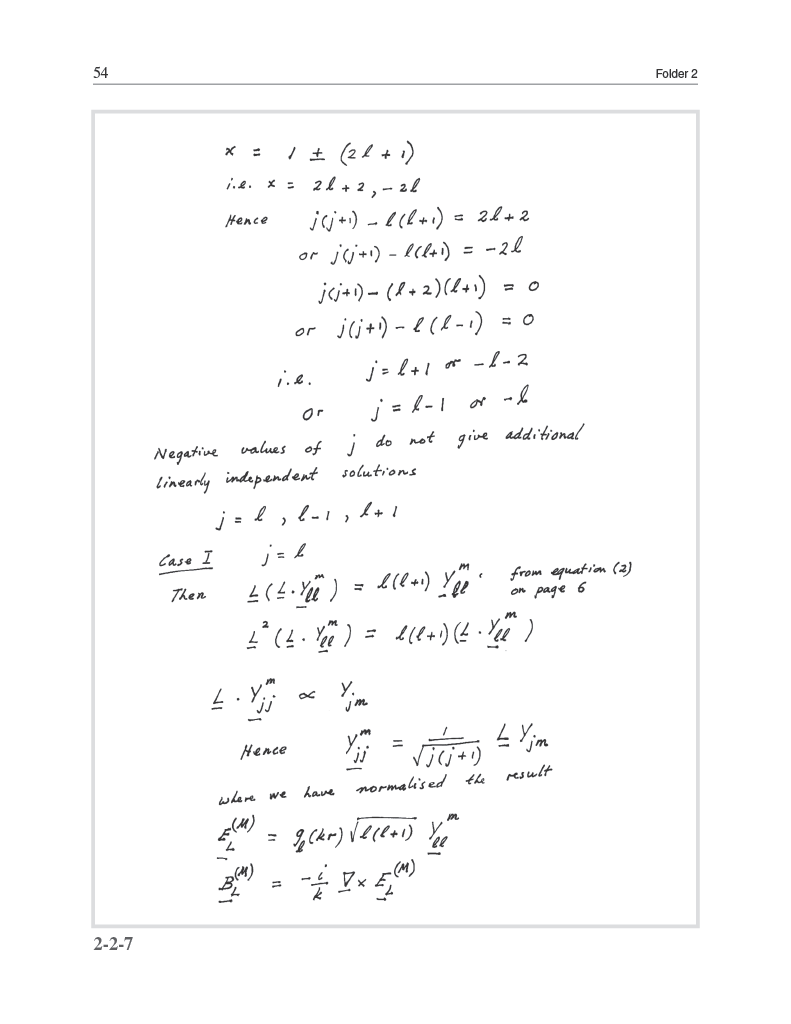 54
Folder 2
x = 1 ± (2l + 1)
i.e. x = 2l + 2 , – 2l
Hence j(j+1) – l(l+1) = 2l + 2
or j(j+1) – l(l+1) = –2l
j(j+1) – (l+2)(l+1) = 0
or j(j+1) – l(l–1) = 0
i.e. j = l+1 or –l–2
or j = l–1 or –l
Negative values of j do not give additional
linearly independent solutions
j = l , l–1 , l+1
Case I j = l
Then L(L·Y_ll^m) = l(l+1) Y_ll^m . from equation (2)
on page 6
L^2 (L·Y_ll^m) = l(l+1)(L·Y_ll^m)
L · Y_jj^m ∝ Y_jm
Hence Y_jj^m = 1/√(j(j+1)) L Y_jm
where we have normalised the result
E_L^(M) = g_l(kr) √(l(l+1)) Y_ll^m
B_L^(M) = –i/k ∇ × E_L^(M)
2-2-7